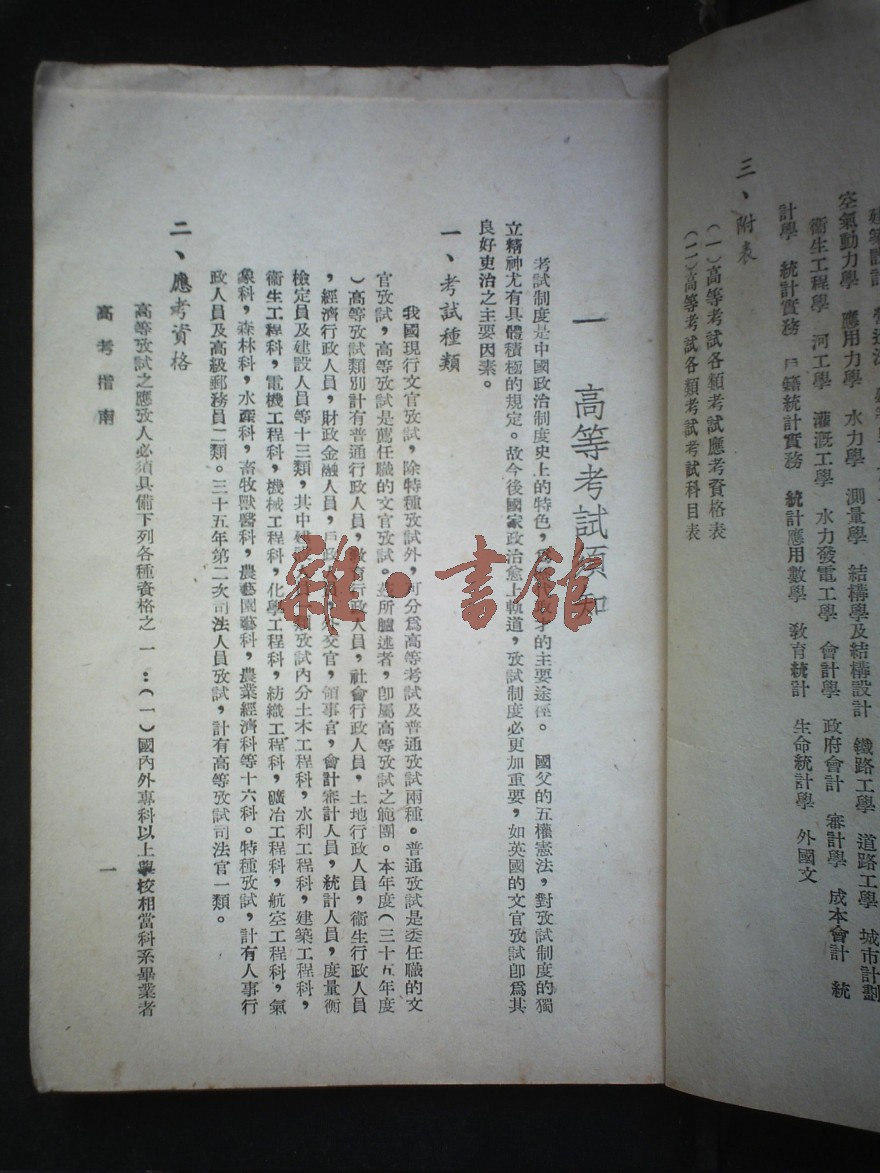 建築設計
空氣動力學 應用力學 水力學 測量學 結構學及結構設計 鐵路工學 道路工學 城市計劃
衛生工程學 河工學 灌漑工學 水力發電工學 會計學 政府會計 審計學 成本會計 統
計學 統計實務 戶籍統計實務 統計應用數學 敎育統計 生命統計學 外國文
三、附表
(一)高等考試各類考試應考資格表
(二)高等考試各類考試考試科目表
一 高等考試須知
考試制度是中國政治制度史上的特色,才的主要途徑。 國父的五權憲法,對攷試制度的獨
立精神尤有具體積極的規定。故今後國家政治愈上軌道,攷試制度必更加重要,如英國的文官攷試卽爲其
良好吏治之主要因素。
一、考試種類
我國現行文官攷試,除特種攷試外,可分爲高等考試及普通攷試兩種。普通攷試是委任職的文
官攷試,高等攷試是薦任職的文官攷試。所臚述者,卽屬高等攷試之範圍。本年度(三十五年度
)高等攷試類別計有普通行政人員,敎育行政人員,社會行政人員,土地行政人員,衞生行政人員
,經濟行政人員,財政金融人員,戶政交官,領事官,會計審計人員,統計人員,度量衡
檢定員及建設人員等十三類,其中建設人員類攷試內分土木工程科,水利工程科,建築工程科,
衞生工程科,電機工程科,機械工程科,化學工程科,紡織工程科,礦冶工程科,航空工程科,氣
象科,森林科,水產科,畜牧獸醫科,農藝園藝科,農業經濟科等十六科。特種攷試,計有人事行
政人員及高級郵務員二類。三十五年第二次司法人員攷試,計有高等攷試司法官一類。
二、應考資格
高等攷試之應攷人必須具備下列各種資格之一:(一)國內外專科以上學校相當科系畢業者
高考指南 一
雜·書館